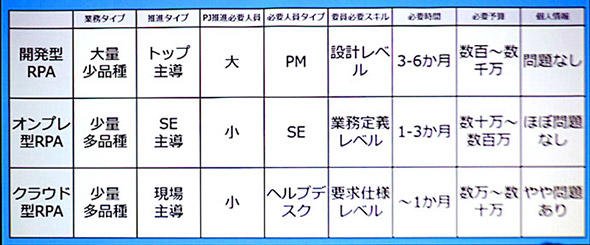 業務タイプ 推進タイプ PJ推進必要人員 必要人員タイプ 要員必要スキル 必要時間 必要予算 個人情報
開発型
RPA
大量
少品種
トップ
主導
大
PM
設計レベ
ル
3-6か月
数百～数
千万
問題なし
オンプレ
型RPA
少量
多品種
SE
主導
小
SE
業務定義
レベル
1-3か月
数十万～
数百万
ほぼ問題
なし
クラウド
型RPA
少量
多品種
現場
主導
小
ヘルプデ
スク
要求仕様
レベル
～1か月
数万～数
十万
やや問題
あり